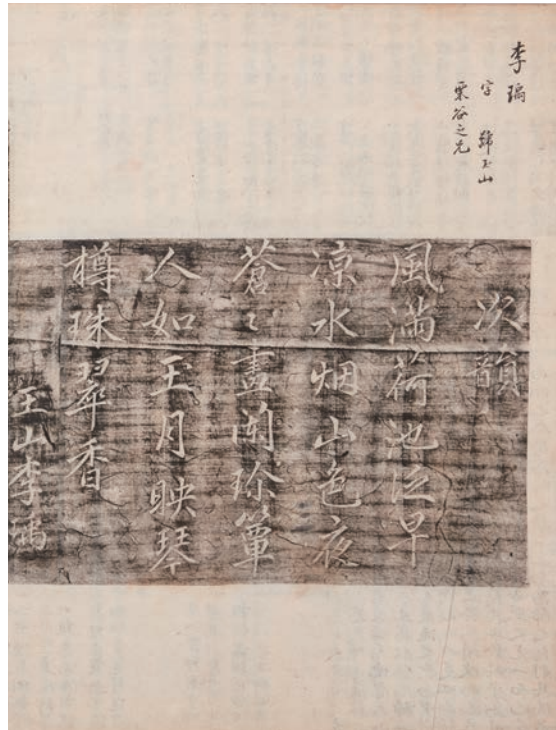 李瑀
字 號玉山
栗谷之兄
次韻
風滿荷池泛早
凉水烟山色夜
蒼〻畫闌珍簟
人如玉月映琴
樽珠翠香
玉山李瑀